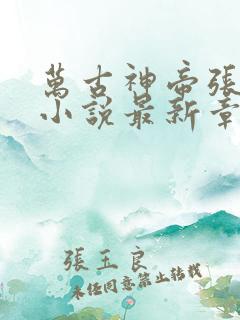 萬古神帝張
小說最新章
張玉良
未經同意禁止轉載